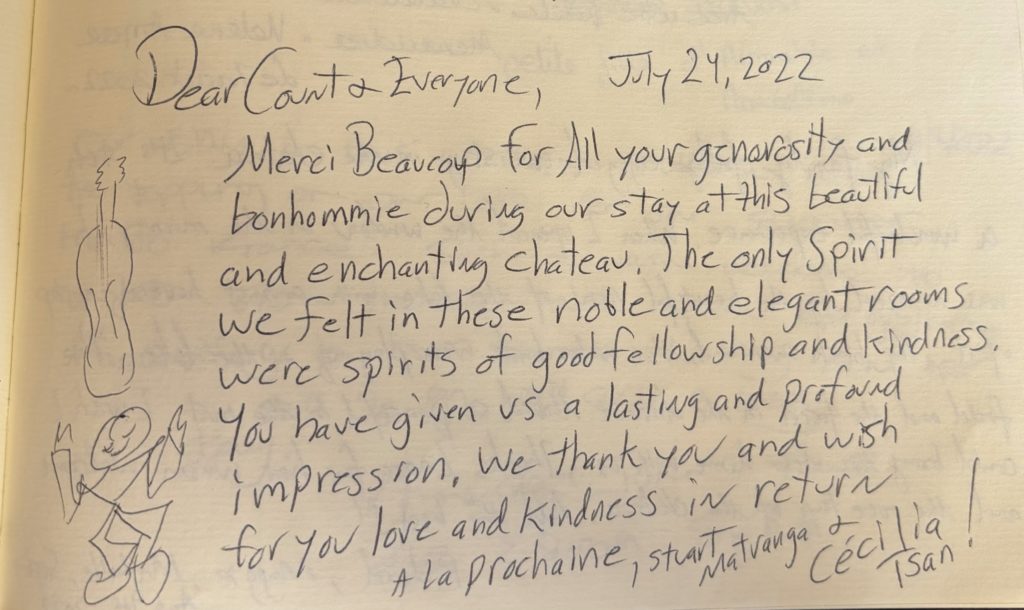 Dear Count & Everyone, July 24, 2022
Merci Beaucoup for All your generosity and
bonhommie during our stay at this beautiful
and enchanting chateau. The only Spirit
we felt in these noble and elegant rooms
were spirits of good fellowship and kindness.
You have given us a lasting and profound
impression. We thank you and wish
for you love and kindness in return
A la prochaine, Stuart Matranga & Cécilia Tsan!